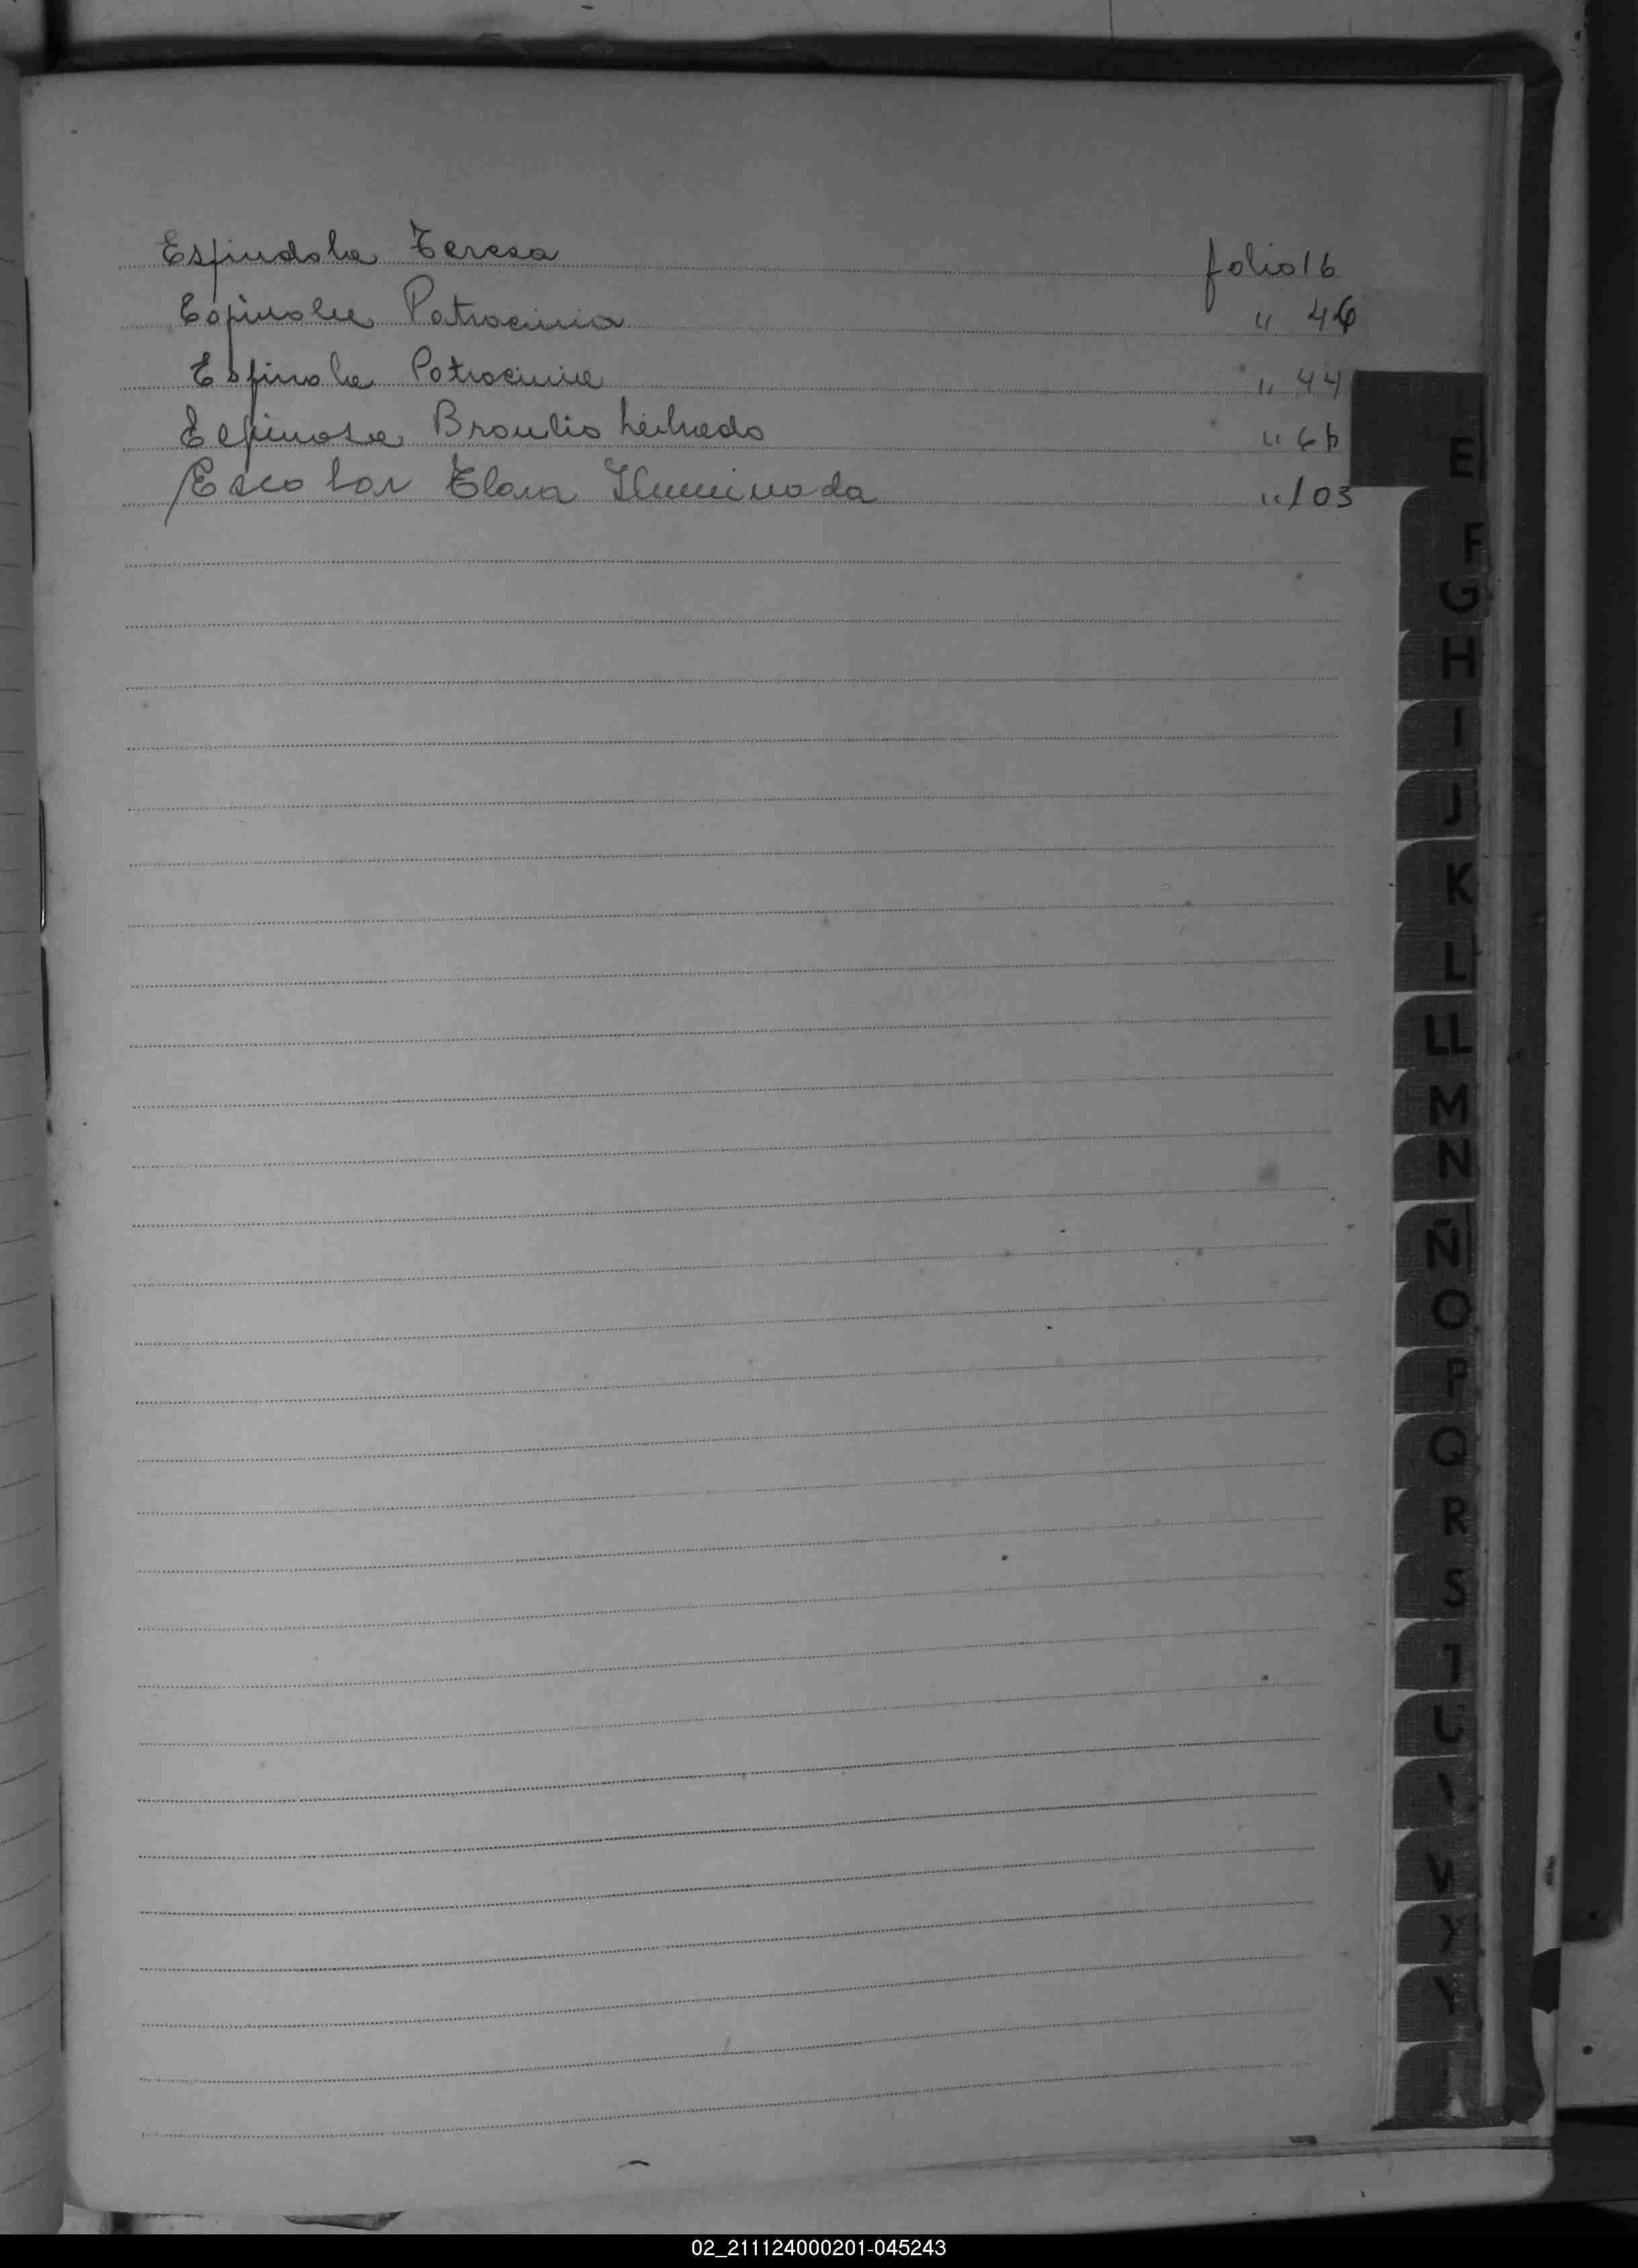 Espindola Teresa folio 16
Espinola Patrocinia " 46
Espinola Patrocinia " 44
Espinosa Braulio " 66
Escobar Elena Iluminada " 103
E
F
G
H
I
J
K
L
LL
M
N
Ñ
O
P
Q
R
S
T
U
V
X
Y
02_211124000201-045243